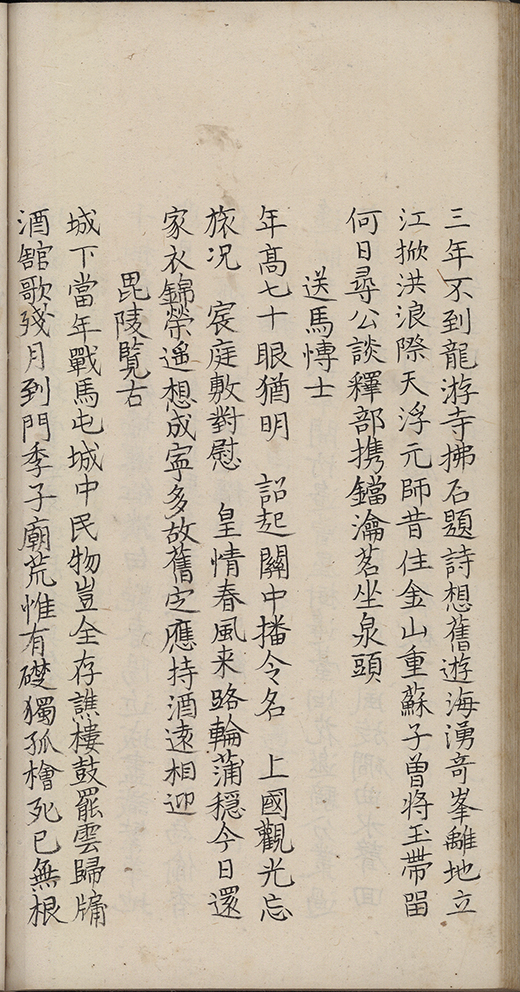 三年不到龍游寺拂石題詩想舊遊海湧竒峯離地立
江掀洪浪際天浮元師昔住金山重蘇子曾將玉帶留
何日尋公談釋部携鐺瀹茗坐泉頭
送馬博士
年髙七十眼猶明 詔起關中播令名 上國觀光忘
旅况 宸庭敷對慰 皇情春風来路輪蒲穩今日還
家衣錦榮遥想成寜多故舊定應持酒遠相迎
毘陵覽古
城下當年戰馬屯城中民物豈全存譙樓鼓罷雲歸牗
酒舘歌殘月到門季子廟荒惟有礎獨孤檜死已無根